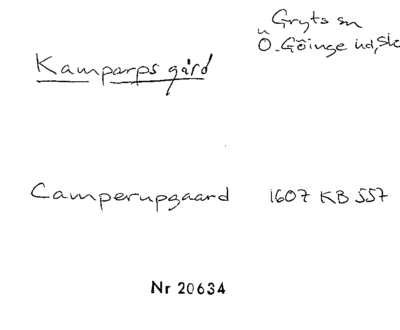 Gryts sn
Ö. Göinge hd, Sk
Kamparps gård
Camperupgaard 1607 KB 557
Nr 20634